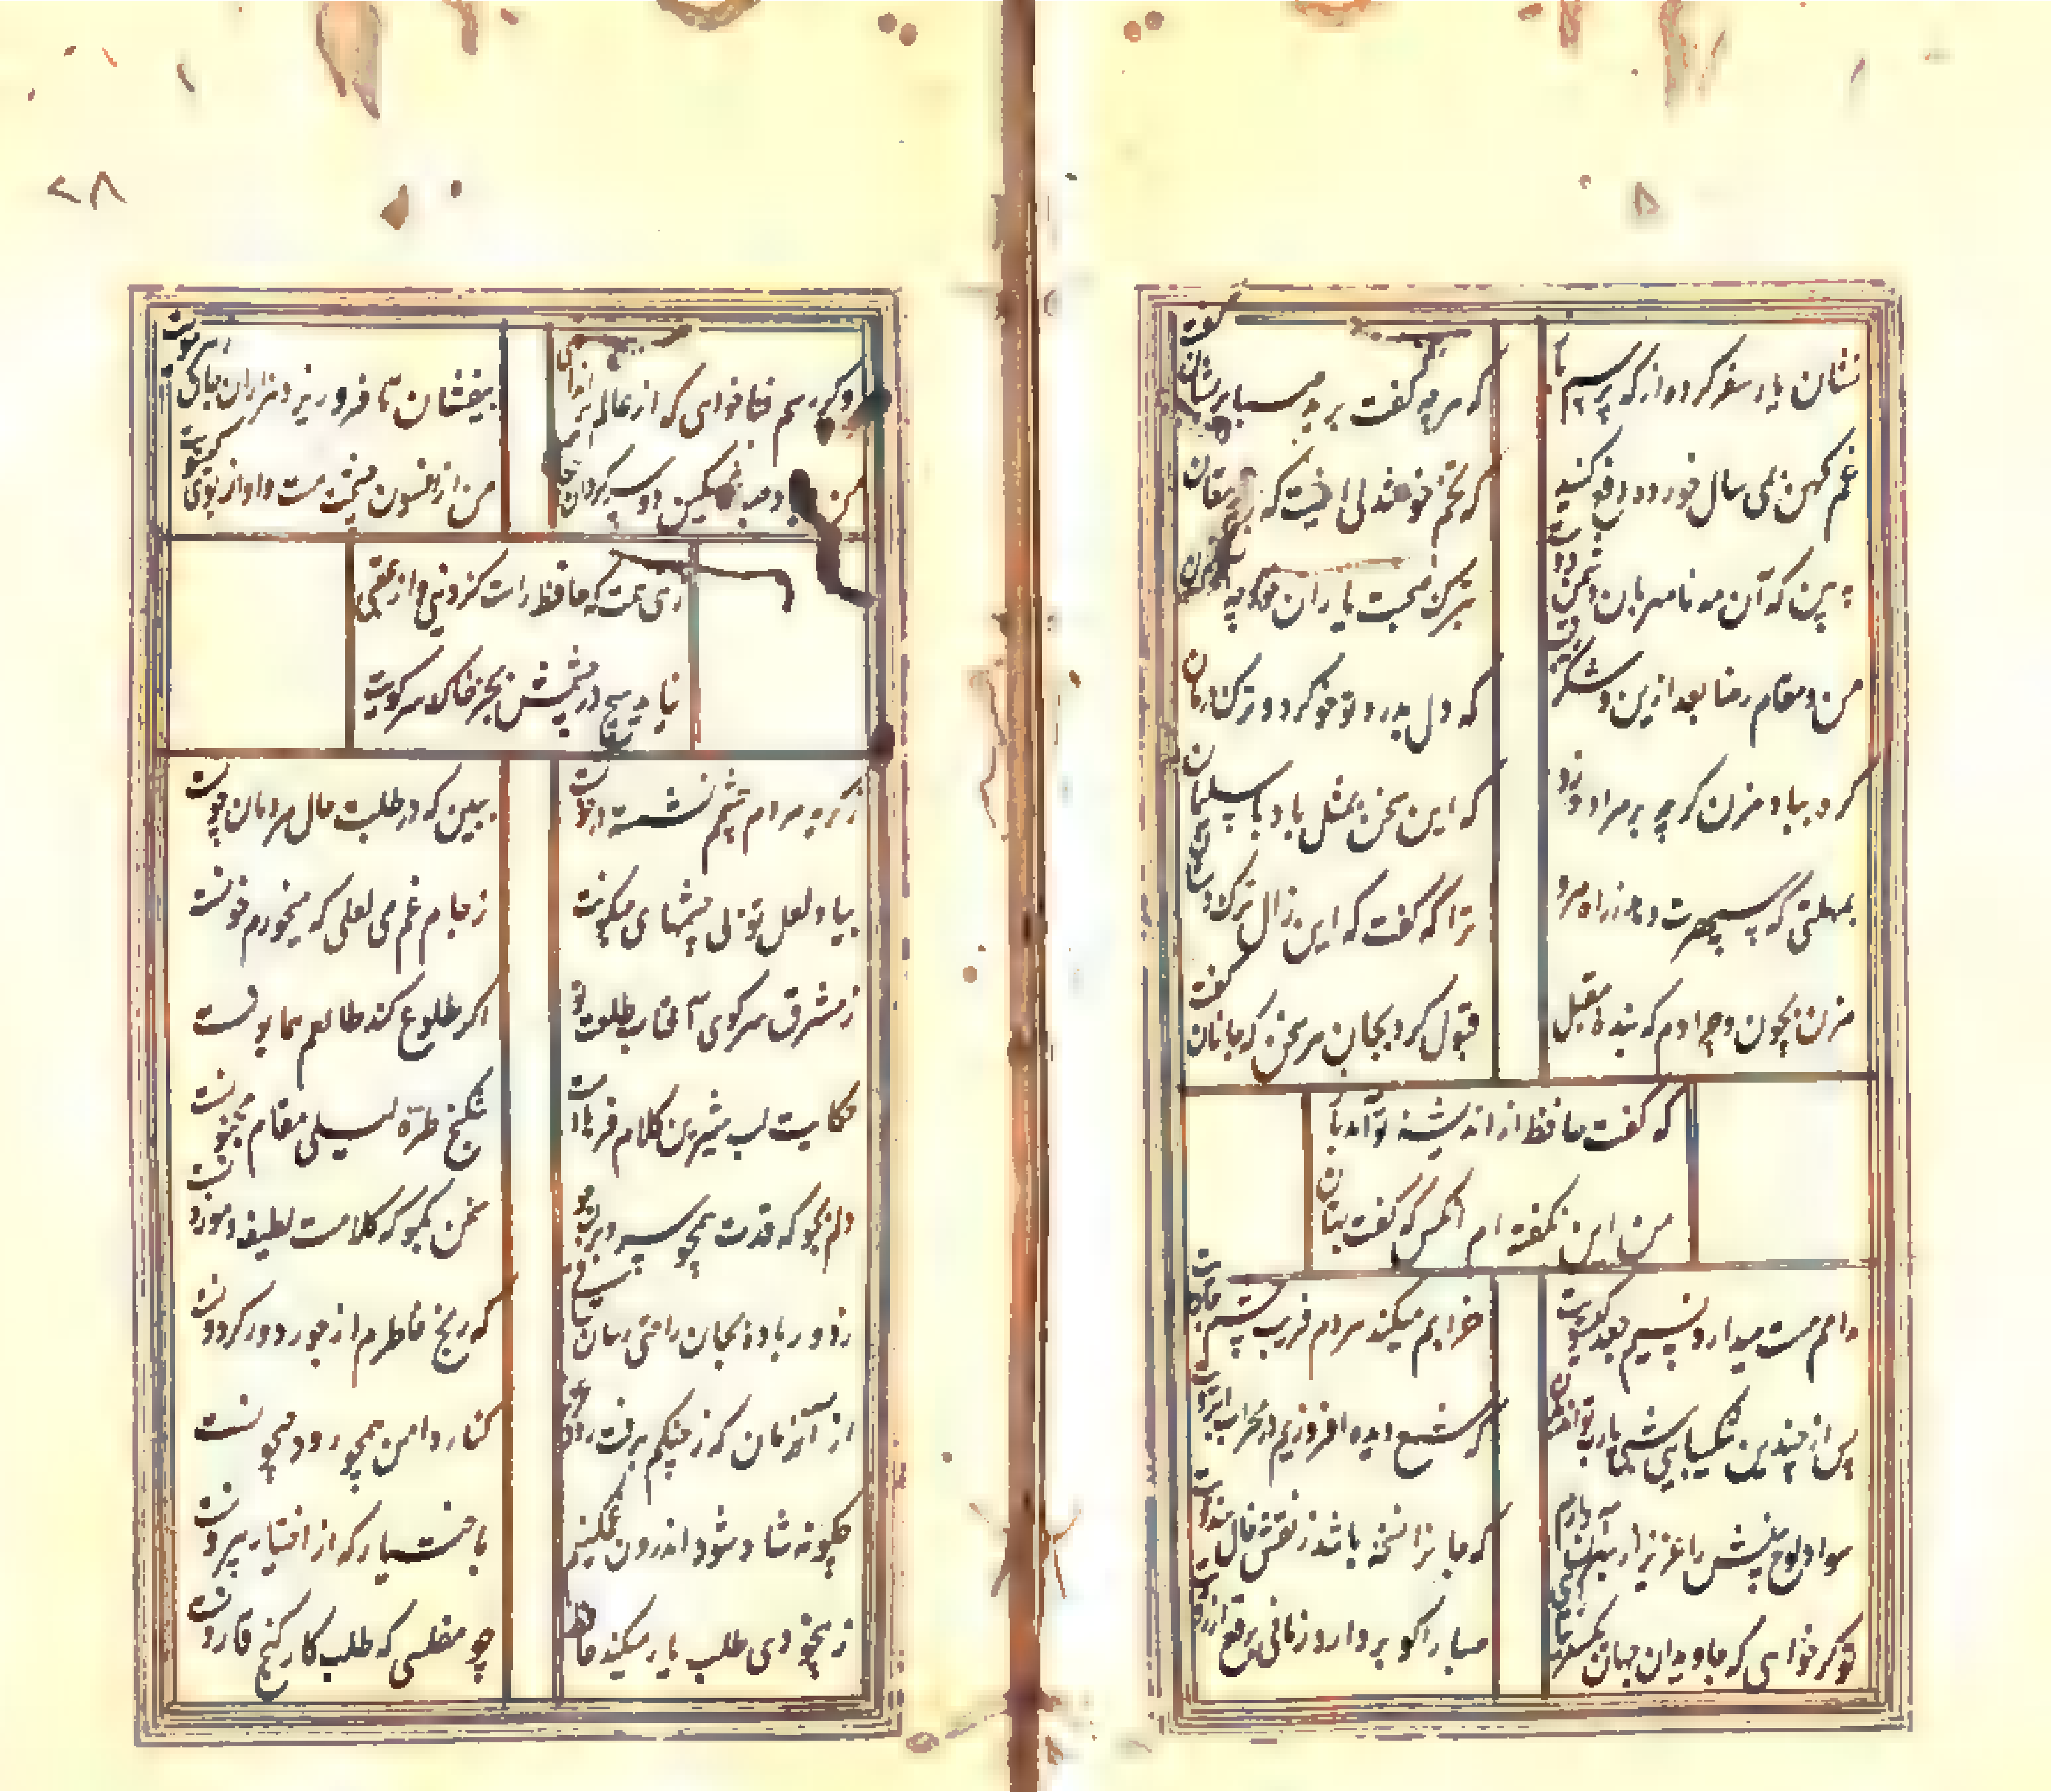 نشان یار سفر کرده از که پرسم باز
که هر چه گفت برید صبا پریشان گفت
غم کهن بمی سال خورده دفع کنید
که تخم خوشدلی اینست که پیر دهقان گفت
که آن مه نامهربان دشمن دوست
بترک صحبت یاران خود چه آسان گفت
من و مقام رضا بعد ازین و شکر رقیب
که دل بدرد تو خو کرد و ترک درمان گفت
گره بباد مزن گر چه بر مراد وزد
که این سخن بمثل باد با سلیمان گفت
بمهلتی که سپهرت دهد ز راه مرو
ترا که گفت که این زال ترک دستان گفت
مزن بچون و چرا دم که بنده مقبل
قبول کرد بجان هر سخن که جانان گفت
که گفت حافظ از اندیشه تو آمد باز
من این نگفته‌ام آنکس که گفت بهتان گفت
دایم مست میدارد نسیم جعد گیسویت
خرابم میکند هر دم فریب چشم جادویت
پس از چندین شکیبایی شبی یارب توان دیدن
که شمع دیده افروزیم در محراب ابرویت
سواد لوح بینش را عزیز از بهر آن دارم
که جانرا نسخه باشد ز نقش خال هندویت
تو گر خواهی که جاویدان جهان یکسر بیارایی
صبا را گو بردارد زمانی برقع از رویت
۲۸
وگر رسم فنا خواهی که از عالم براندازی
بیفشان تا فرو ریزد هزاران جان
من و باد صبا مسکین دو سرگردان
من از افسون چشمت مست و او از بوی گیسویت
زهی همت که حافظ راست کز دنیی و از عقبی
نیاید هیچ در چشمش بجز خاک سر کویت
ز گریه مردم چشم نشسته در خونست
ببین که در طلبت حال مردمان چونست
بیاد لعل تو بی چشمهای میگونت
ز جام غم می لعلی که میخورم خونست
ز مشرق سر کوی آفتاب طلعت تو
اگر طلوع کند طالعم همایونست
حکایت لب شیرین کلام فرهادست
شکنج طره لیلی مقام مجنونست
دلم بجو که قدت همچو سرو دلجویست
سخن بگو که کلامت لطیف و موزونست
ز دور باده بجان راحتی رسان ساقی
که رنج خاطرم از جور دور گردونست
از آنزمان که ز چنگم برفت رود عزیز
کنار دامن همچو رود جیحونست
چگونه شاد شود اندرون غمگینم
باختیار که از اختیار بیرونست
ز بیخودی طلب یار میکند حافظ
چو مفلسی که طلب کار گنج قارونست